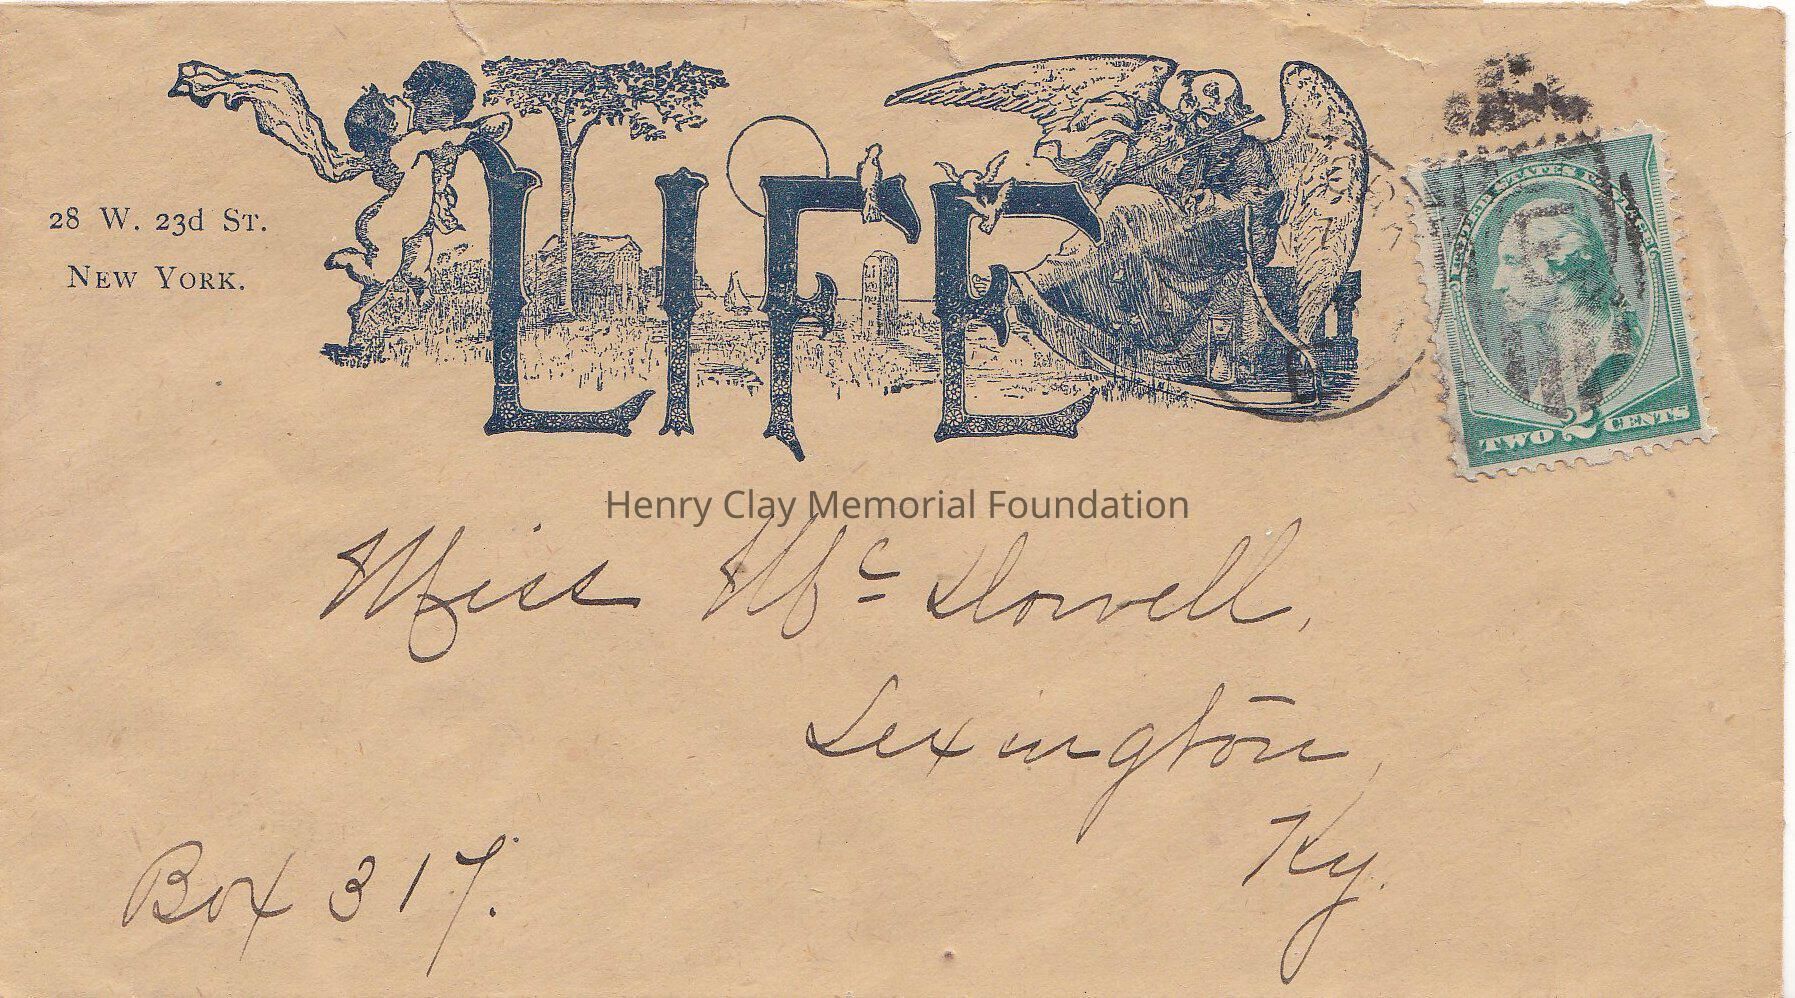 28 W. 23d St.
New York.
LIFE
UNITED STATES POSTAGE
TWO 2 CENTS
Henry Clay Memorial Foundation
Miss Mc Dowell,
Lexington,
Ky.
Box 317.